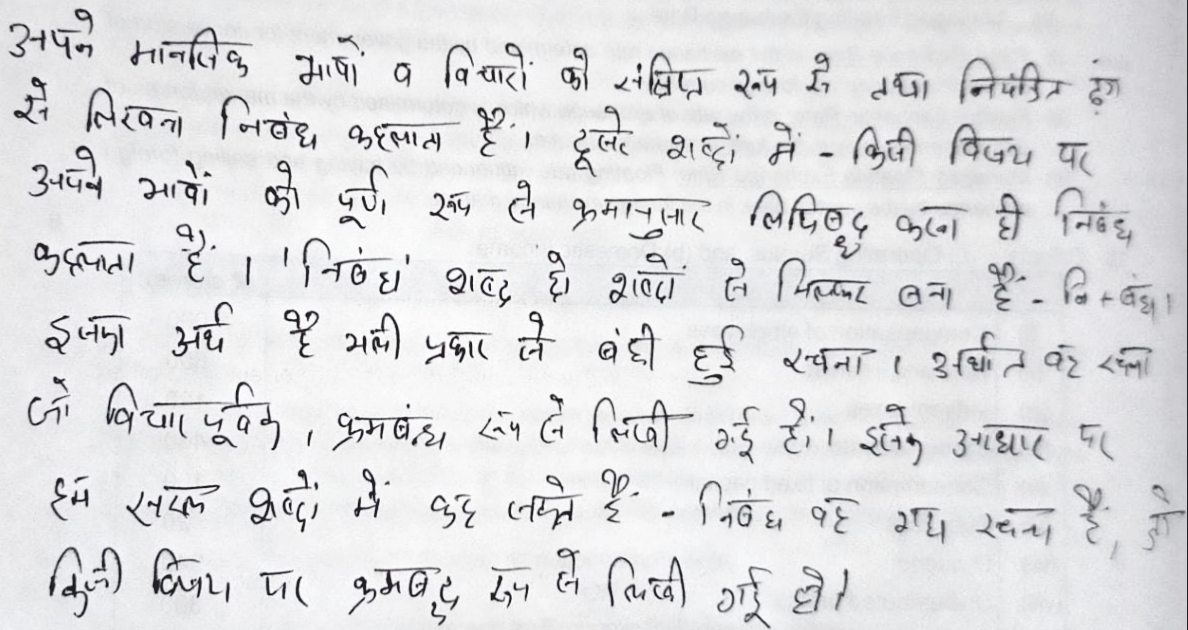 अपने मानसिक भावों व विचारों को संक्षिप्त रूप से तथा नियंत्रित ढंग
से लिखना निबंध कहलाता है। दूसरे शब्दों में - किसी विषय पर
अपने भावों को पूर्ण रूप से क्रमानुसार लिपिबद्ध करना ही निबंध
कहलाता है। 'निबंध' शब्द दो शब्दों से मिलकर बना है - नि + बंध।
इसका अर्थ है भली प्रकार से बंधी हुई रचना। अर्थात वह रचना
जो विचार पूर्वक, क्रमबध्द रूप से लिखी गई हो। इसके आधार पर
हम सरल शब्दों में कह सकते है- निबंध वह गद्य रचना है, जो
किसी विषय पर क्रमबद्ध रूप से लिखी गई हो।